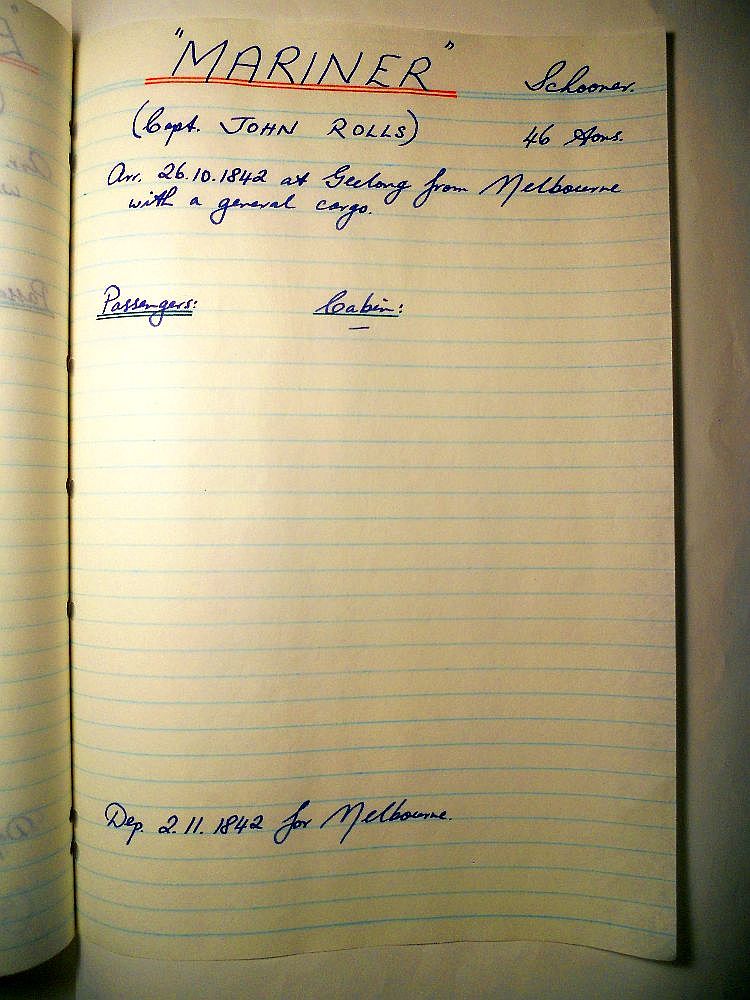 "MARINER" Schooner.
(Capt. JOHN ROLLS) 46 tons.
Arr. 26.10.1842 at Geelong from Melbourne
with a general cargo.
Passengers: Cabin:
—
Dep. 2.11.1842 for Melbourne.